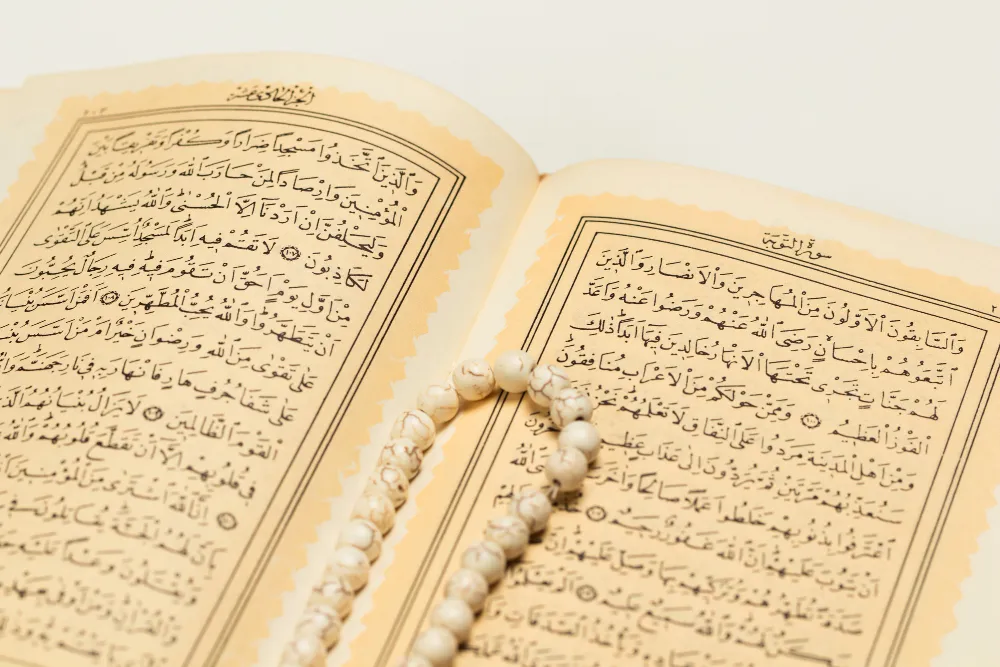 سورة التوبة
وَالسَّابِقُونَ الْاَوَّلُونَ مِنَ الْمُهَاجِرِينَ وَالْاَنْصَارِ وَالَّذِينَ
اتَّبَعُوهُمْ بِاِحْسَانٍ رَضِىَ اللهُ عَنْهُمْ وَرَضُوا عَنْهُ وَاَعَدَّ
لَهُمْ جَنَّاتٍ تَجْرِى تَحْتَهَا الْاَنْهَارُ خَالِدِينَ فِيهَا اَبَدًا ذٰلِكَ
الْفَوْزُ الْعَظِيمُ وَمِمَّنْ حَوْلَكُمْ مِنَ الْاَعْرَابِ مُنَافِقُونَ
وَمِنْ اَهْلِ الْمَدِينَةِ مَرَدُوا عَلَى النِّفَاقِ لَا تَعْلَمُهُمْ نَحْنُ
سَنُعَذِّبُهُمْ مَرَّتَيْنِ ثُمَّ يُرَدُّونَ اِلٰى عَذَابٍ عَظِيمٍ
اعْتَرَفُوا بِذُنُوبِهِمْ خَلَطُوا عَمَلًا صَالِحًا وَاٰخَرَ اللهُ
اَنْ يَتُوبَ عَلَيْهِمْ اِنَّ اللهَ غَفُورٌ رَحِيمٌ
صَدَقَةً تُطَهِّرُهُمْ وَتُزَكِّيهِمْ بِهَا وَصَلِّ عَلَيْهِمْ اِنَّ
سَكَنٌ لَهُمْ وَاللهُ سَمِيعٌ عَلِيمٌ
الصَّدَقَاتِ
الجزء الحادى عشر
٢٠٣
وَالَّذِينَ اتَّخَذُوا مَسْجِدًا ضِرَارًا وَكُفْرًا وَتَفْرِيقًا بَيْنَ
الْمُؤْمِنِينَ وَاِرْصَادًا لِمَنْ حَارَبَ اللهَ وَرَسُولَهُ مِنْ قَبْلُ
وَلَيَحْلِفُنَّ اِنْ اَرَدْنَا اِلَّا الْحُسْنٰى وَاللهُ يَشْهَدُ اِنَّهُمْ
لَكَاذِبُونَ ١٠٧ لَا تَقُمْ فِيهِ اَبَدًا لَمَسْجِدٌ اُسِّسَ عَلَى التَّقْوٰى
مِنْ اَوَّلِ يَوْمٍ اَحَقُّ اَنْ تَقُومَ فِيهِ فِيهِ رِجَالٌ يُحِبُّونَ
اَنْ يَتَطَهَّرُوا وَاللهُ يُحِبُّ الْمُطَّهِّرِينَ ١٠٨ اَفَمَنْ اَسَّسَ بُنْيَانَهُ
عَلٰى تَقْوٰى مِنَ اللهِ وَرِضْوَانٍ خَيْرٌ اَمْ مَنْ اَسَّسَ
عَلٰى شَفَا جُرُفٍ هَارٍ فَانْهَارَ بِهِ فِى نَارِ جَهَنَّمَ
الْقَوْمَ الظَّالِمِينَ لَا يَزَالُ بُنْيَانُهُمُ
فِى قُلُوبِهِمْ اِلَّا اَنْ تَقَطَّعَ قُلُوبُهُمْ وَاللهُ
اِنَّ اللهَ اشْتَرٰى مِنَ الْمُؤْمِنِينَ
بِاَنَّ لَهُمُ الْجَنَّةَ يُقَاتِلُونَ
وَيُقْتَلُونَ وَعْدًا عَلَيْهِ
وَالْقُرْاٰنِ وَمَنْ اَوْفٰى بِعَهْدِهِ